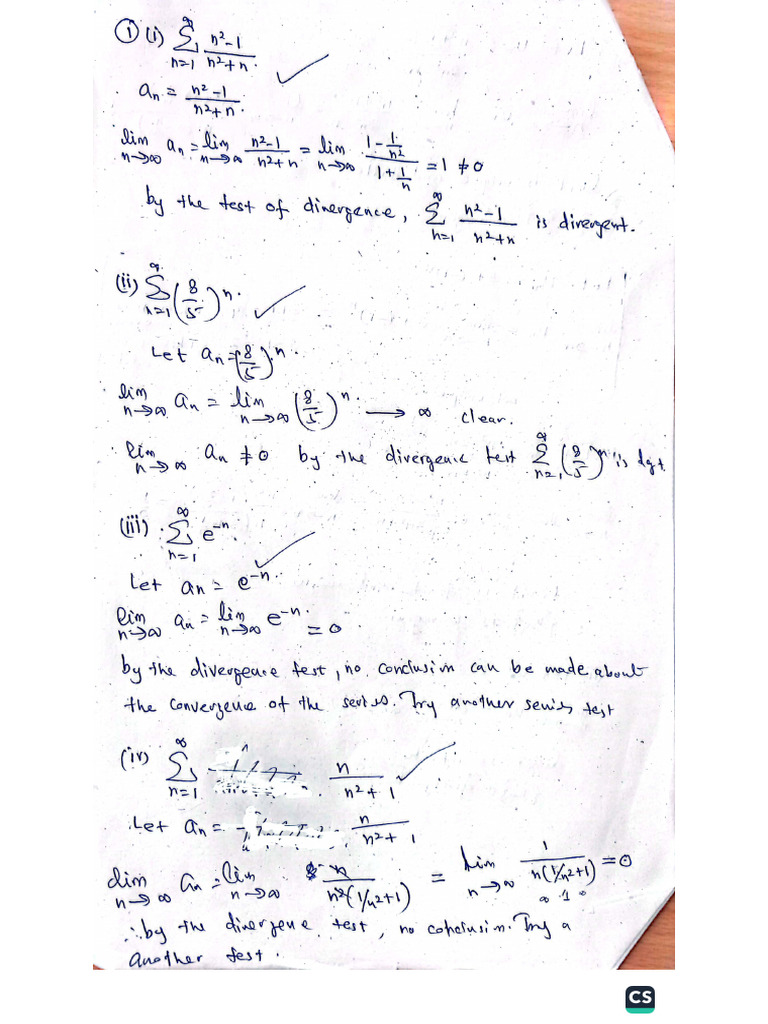 ① (i) ∑_{n=1}^{∞} (n²-1)/(n²+n).
a_n = (n²-1)/(n²+n).
lim_{n→∞} a_n = lim_{n→∞} (n²-1)/(n²+n) = lim_{n→∞} (1-1/n²)/(1+1/n) = 1 ≠ 0
by the test of dinergence, ∑_{n=1}^{∞} (n²-1)/(n²+n) is divergent.
(ii) ∑_{n=1}^{∞} (8/5)^n.
Let a_n = (8/5)^n.
lim_{n→∞} a_n = lim_{n→∞} (8/5)^n. → ∞ clear.
lim_{n→∞} a_n ≠ 0 by the divergence test ∑_{n=1}^{∞} (8/5)^n is dgt.
(iii) ∑_{n=1}^{∞} e^{-n}.
Let a_n = e^{-n}.
lim_{n→∞} a_n = lim_{n→∞} e^{-n}. = 0
by the divergence test, no conclusion can be made about
the convergence of the series. Try another series test
(iv) ∑_{n=1}^{∞} n/(n²+1)
Let a_n = n/(n²+1)
lim_{n→∞} a_n = lim_{n→∞} n/(n²(1/n²+1)) = lim_{n→∞} 1/(n(1/n²+1)) = 0
∴ by the divergence test, no conclusion. Try a
another test.
CS